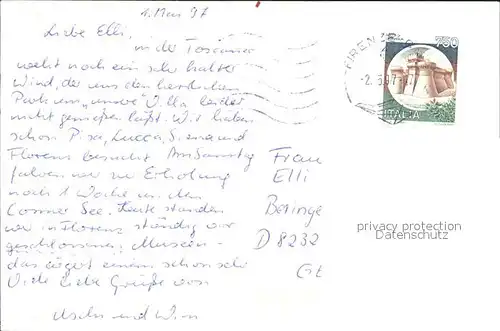 1. Mai 97
Liebe Elli,
in der Toscana
weht noch ein sehr kalter
Wind, der uns den herrlichen
Park um unsere Villa leider
nicht genießen läßt. Wir haben
schon Pisa, Lucca, Siena und
Florenz besucht. Am Samstag
fahren wir zu Erholung
noch 1 Woche an den
Comer See. Heute standen
wir in Florenz ständig vor
geschlossenen Museen -
das ärgert einen schon sehr
Viele liebe Grüße von
und
750
FIRENZE
-2.5.97
ITALIA
Frau
Elli
Beringe
D 8232
GE
privacy protection
Datenschutz